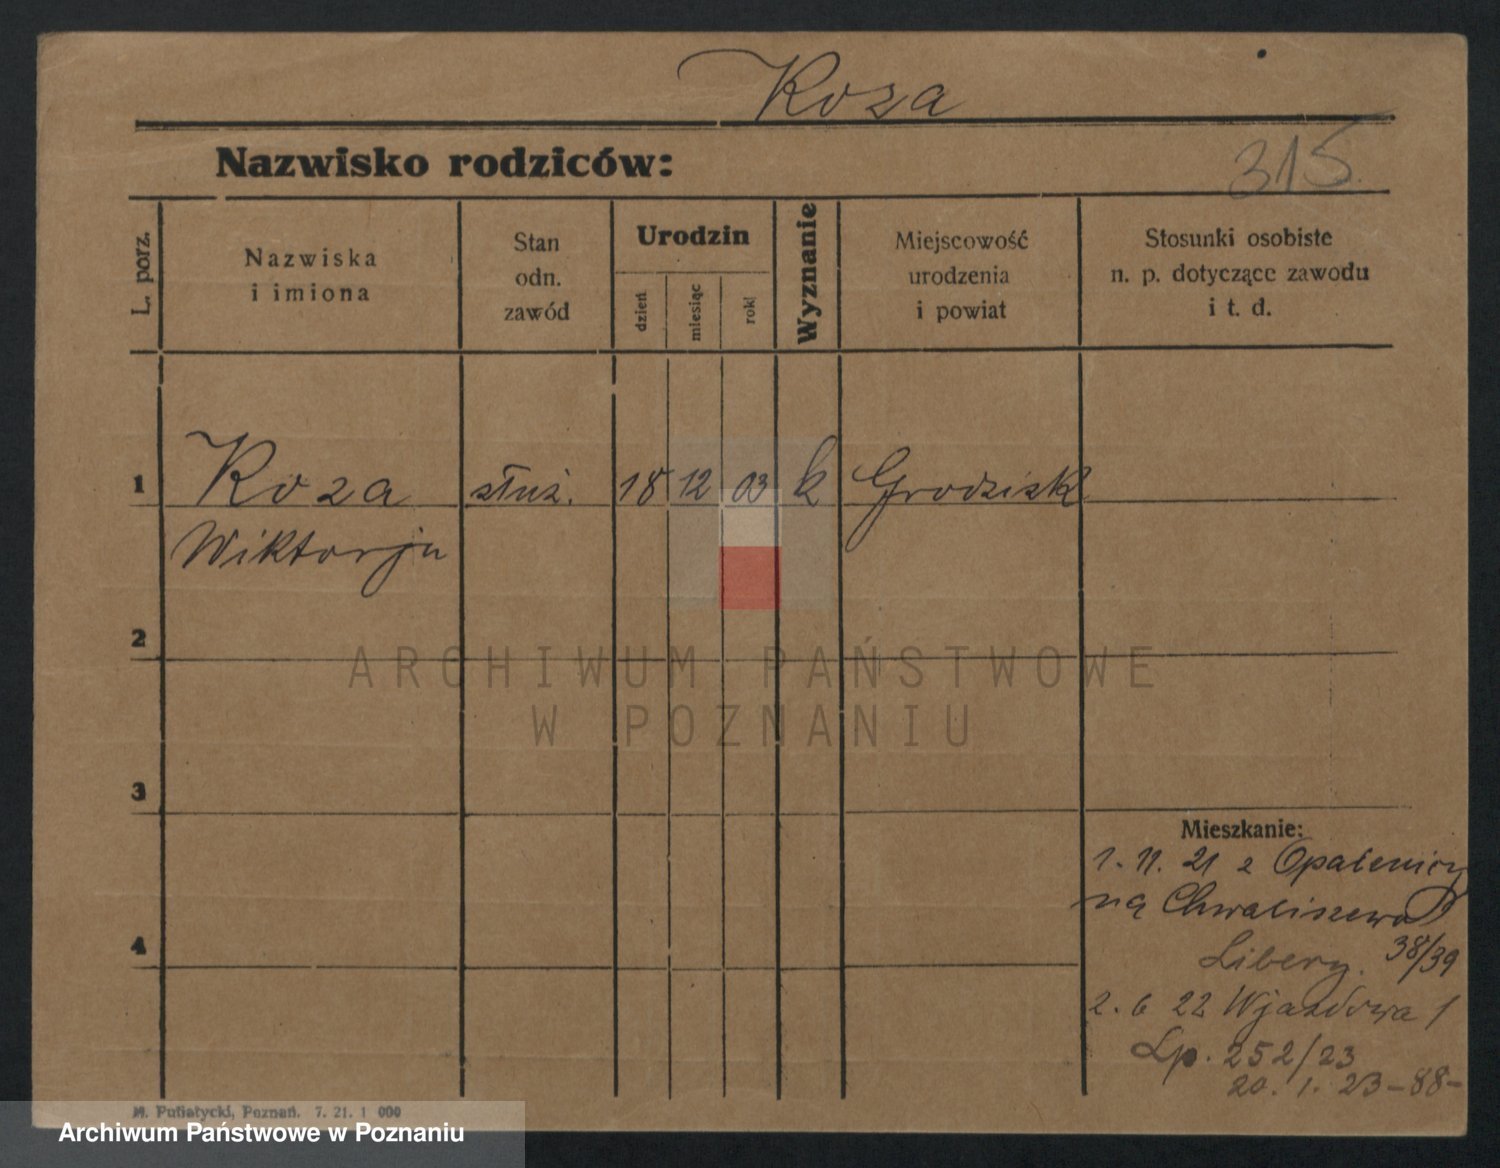 Koza
Nazwisko rodziców:
315.
L. porz.
Nazwiska
i imiona
Stan
odn.
zawód
Urodzin
dzień
miesiąc
rok
Wyznanie
Miejscowość
urodzenia
i powiat
Stosunki osobiste
n. p. dotyczące zawodu
i t. d.
1
Koza służ. 18 12 03 k Grodzisk
Wiktorja
2
ARCHIWUM PAŃSTWOWE
W POZNANIU
3
Mieszkanie:
1. 11. 21 z Opalenicy
na Chwaliszewo
38/39
4
2. 6 22 Wjazdowa 1
Lp. 252/23
20. 1. 23-88-
M. Putiatycki, Poznań. 7. 21. 1 000
Archiwum Państwowe w Poznaniu